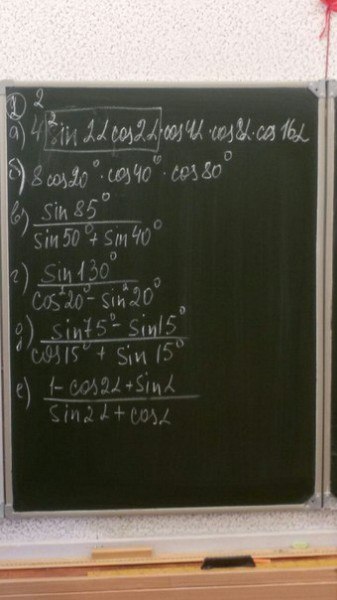 ① 2
а) 4 sin 2α cos2α · cos4α · cos8α · cos 16α
б) 8 cos20° · cos40° · cos80°
в) sin 85° / sin 50° + sin 40°
г) sin 130° / cos²20° - sin²20°
д) sin75° - sin15° / cos15° + sin 15°
е) 1 - cos2α + sinα / sin2α + cosα